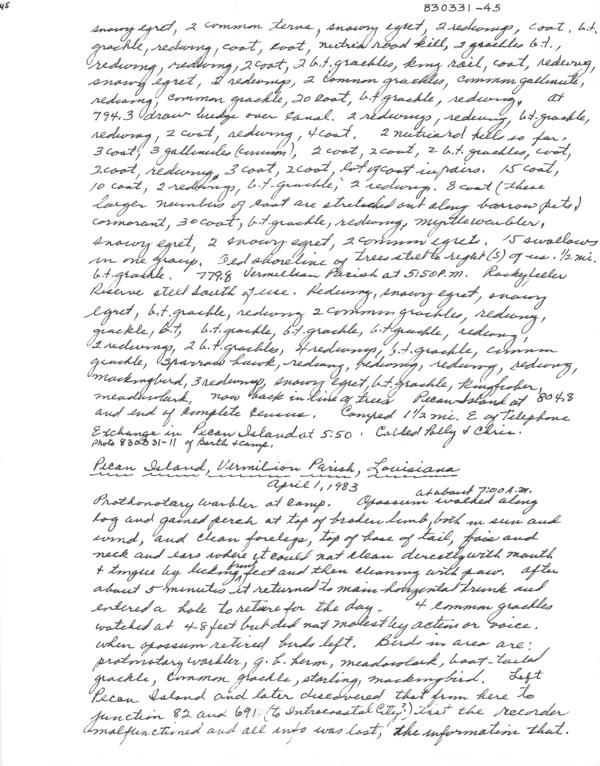 45
830331-45
snowy egret, 2 common terns, snowy egret, 2 redwings, coot, b.t.
grackle, redwing, coot, coot, nutria road kill, 2 grackles b.t.,
redwing, redwing, 2 coot, 2 b.t. grackles, king rail, coot, redwing,
snowy egret, 2 redwings, 2 common grackles, common gallinule,
redwing, common grackle, 20 coot, b.t. grackle, redwing, at
794.3 draw bridge over canal. 2 redwings, redwing, b.t. grackle,
redwing, 2 coot, redwing, 4 coot. 2 nutria rd kills so far.
3 coot, 3 gallinules (common), 2 coot, 2 coot, 2 b.t. grackles, coot,
2 coot, redwing, 3 coot, 2 coot, lot of coot in pairs. 15 coot,
10 coot, 2 redwings, b.t. grackle, 2 redwing. 8 coot (these
larger numbers of coot are stretched out along borrow pits)
cormorant, 30 coot, b.t. grackle, redwing, myrtle warbler,
snowy egret, 2 snowy egret, 2 common egrets. 15 swallows
in one group. Old shoreline of trees stretch to right (S) of us. 1/2 mi.
b.t. grackle. 779.8 Vermilion Parish at 5:50 P.M. Rockyfeeler
Reserve still South of use. Redwing, snowy egret, snowy
egret, b.t. grackle, redwing 2 common grackles, redwing,
grackle, b.t., b.t. grackle, b.t. grackle, b.t. grackle, redwing,
2 redwings, 2 b.t. grackles, 4 redwings, b.t. grackle, common
grackle, sparrow hawk, redwing, redwing, redwing, redwing,
mockingbird, 3 redwings, snowy egret, b.t. grackle, kingfisher,
meadowlark, now back in line of trees Pecan Island at 804.8
and end of complete census. Camped 1 1/2 mi. E of Telephone
Exchange in Pecan Island at 5:50. Called Polly & Chris.
Photo 830331-11 of Barth & camp.
Pecan Island, Vermilion Parish, Louisiana
April 1, 1983
at about 7:00 A.M.
Prothonotary warbler at camp. Opossum walked along
log and gained perch at top of broken limb, both in sun and
wind, and clean forelegs, top of base of tail, face and
neck and ears where it could not clean directly with mouth
& tongue by licking front feet and then cleaning with paw. After
about 5 minutes it returned to main horizontal trunk and
entered a hole to retire for the day. 4 common grackles
watched at 4-8 feet but did not molest by action or voice.
When opossum retired birds left. Birds in area are:
protonotary warbler, g.b. heron, meadowlark, boat-tailed
grackle, common grackle, starling, mockingbird. Left
Pecan Island and later discovered that from here to
junction 82 and 691 (to Intracoastal City?) that the recorder
malfunctioned and all info was lost, the information that.